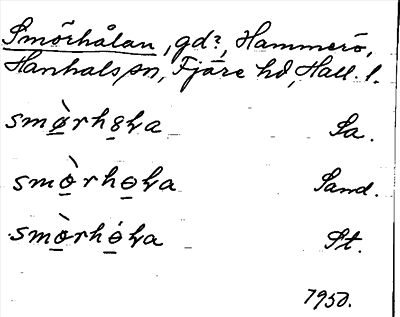 Smörhålan, gd?, Hammerö,
Hanhals sn, Fjäre hd, Hall. l.
smø̲̀rho̲ɫa Sa.
smò̲rho̲ɫa Sand.
smò̲rhó̲ɫa St.
1950.